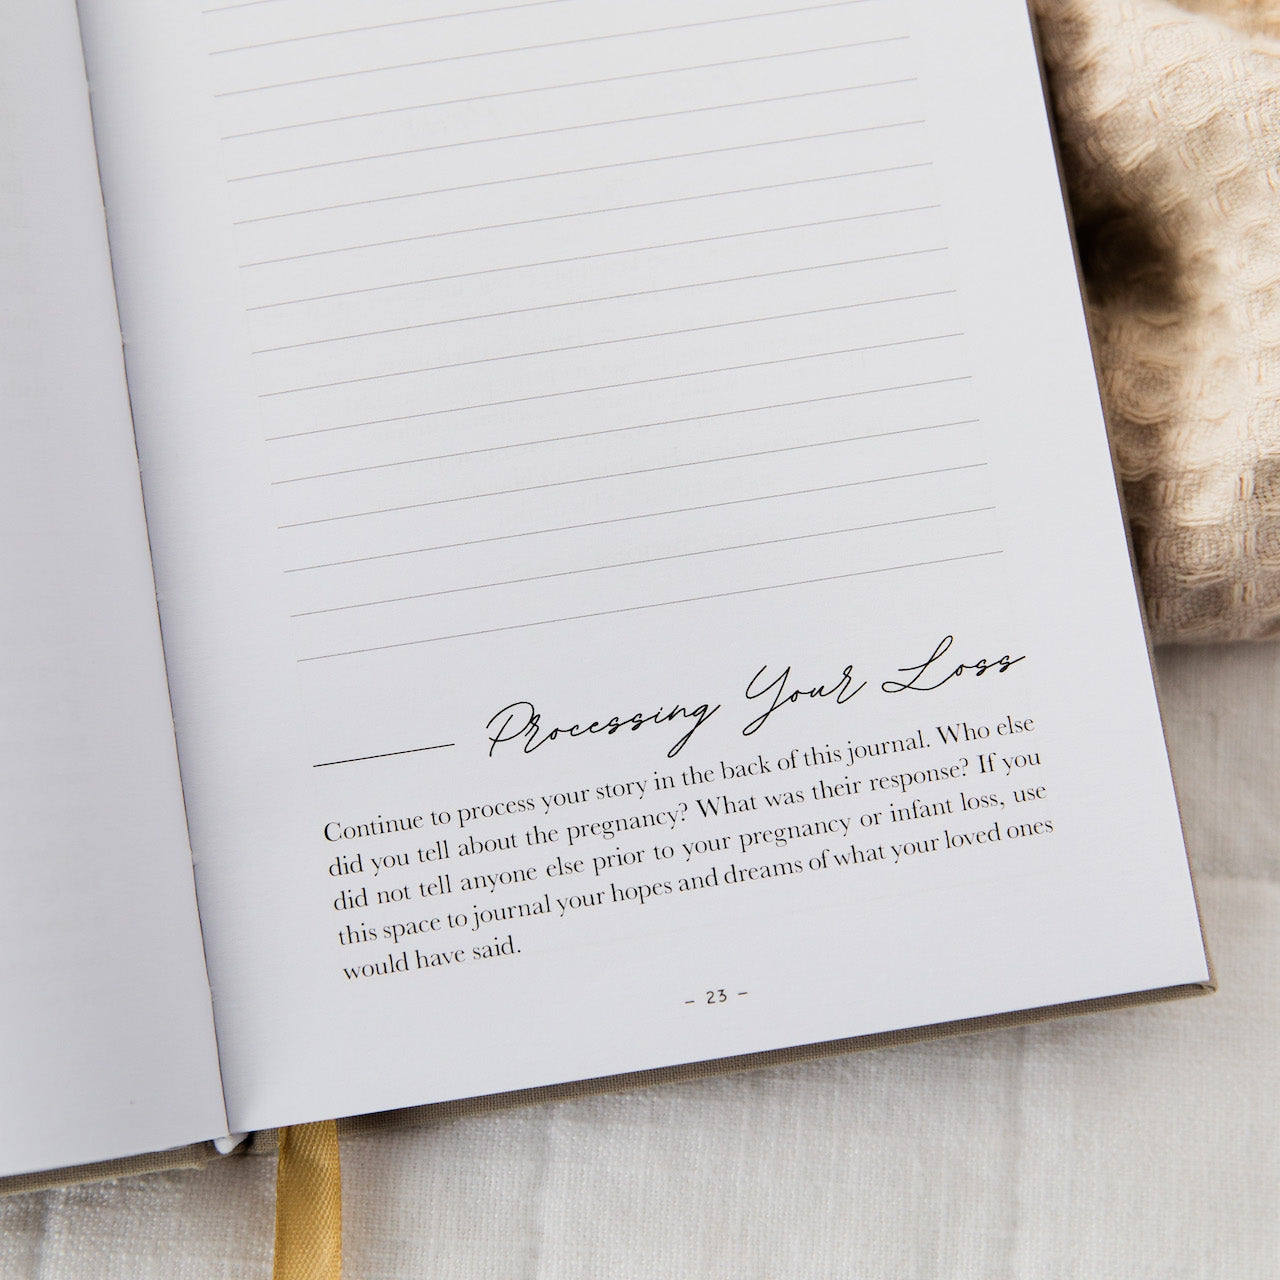 Processing Your Loss
Continue to process your story in the back of this journal. Who else
did you tell about the pregnancy? What was their response? If you
did not tell anyone else prior to your pregnancy or infant loss, use
this space to journal your hopes and dreams of what your loved ones
would have said.
– 23 –